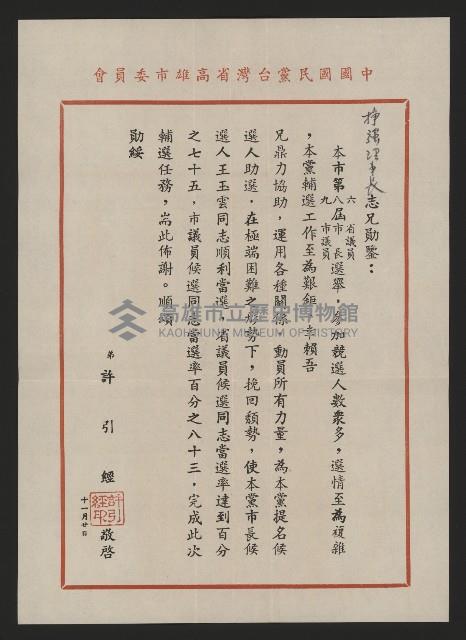 中國國民黨台灣省高雄市委員會
理事長志兄勛鑒：
本市第六八九屆省議員市長市議員選舉，參加競選人數眾多，選情至為複雜
，本黨輔選工作至為艱鉅，幸賴吾
兄鼎力協助，運用各種關係，動員所有力量，為本黨提名候
選人助選，在極端困難之形勢下，挽回頹勢，使本黨市長候
選人王玉雲同志順利當選，省議員候選同志當選率達到百分
之七十五，市議員候選同志當選率百分之八十三，完成此次
輔選任務，耑此佈謝。順頌
勛綏
弟 許引經 敬啓
許引經印
十一月廿日
高雄市立歷史博物館
KAOHSIUNG MUSEUM OF HISTORY